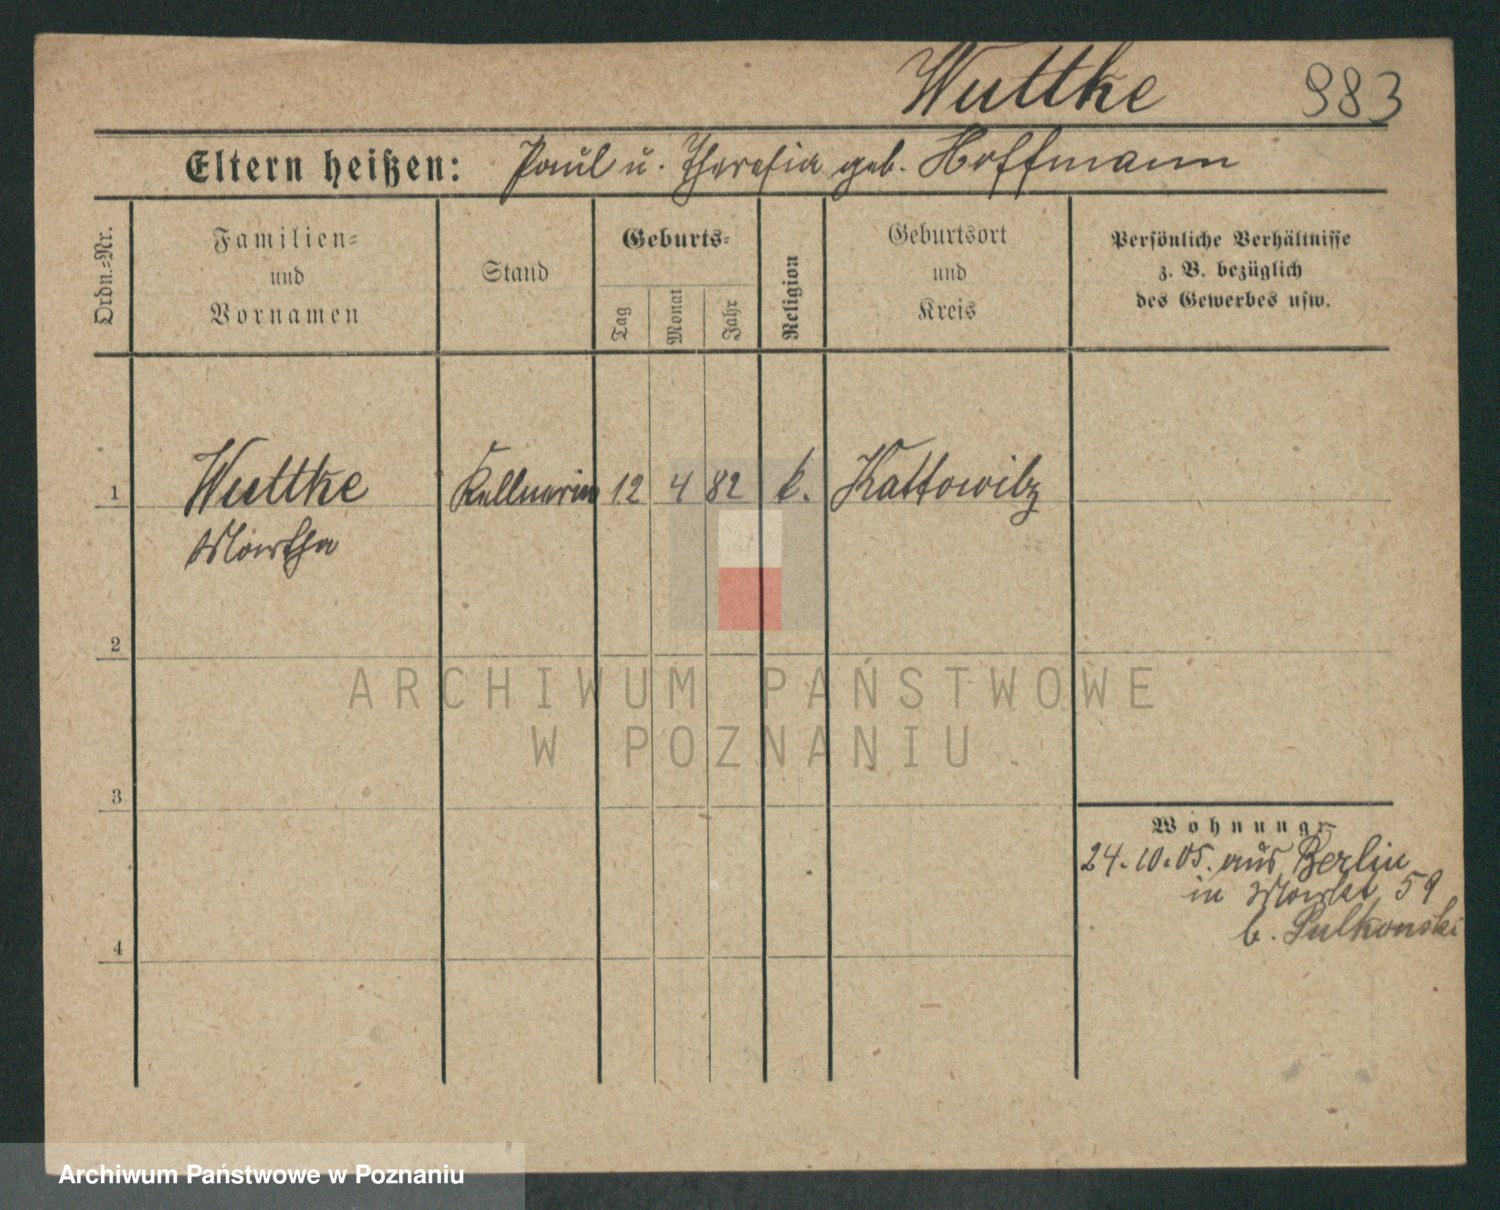 Wuttke 983
Eltern heißen: Paul u. Theresia geb. Hoffmann
Ordn.-Nr.
Familien-
und
Vornamen
Stand
Geburts-
Tag
Monat
Jahr
Religion
Geburtsort
und
Kreis
Persönliche Verhältnisse
z. B. bezüglich
des Gewerbes usw.
1 Wuttke Kellnerin 12 4 82 k. Kattowitz
Martha
2
ARCHIWUM PAŃSTWOWE
W POZNANIU
3
Wohnung:
24.10.05. aus Berlin
in Markt 59
b. Pulkowski
4
Archiwum Państwowe w Poznaniu